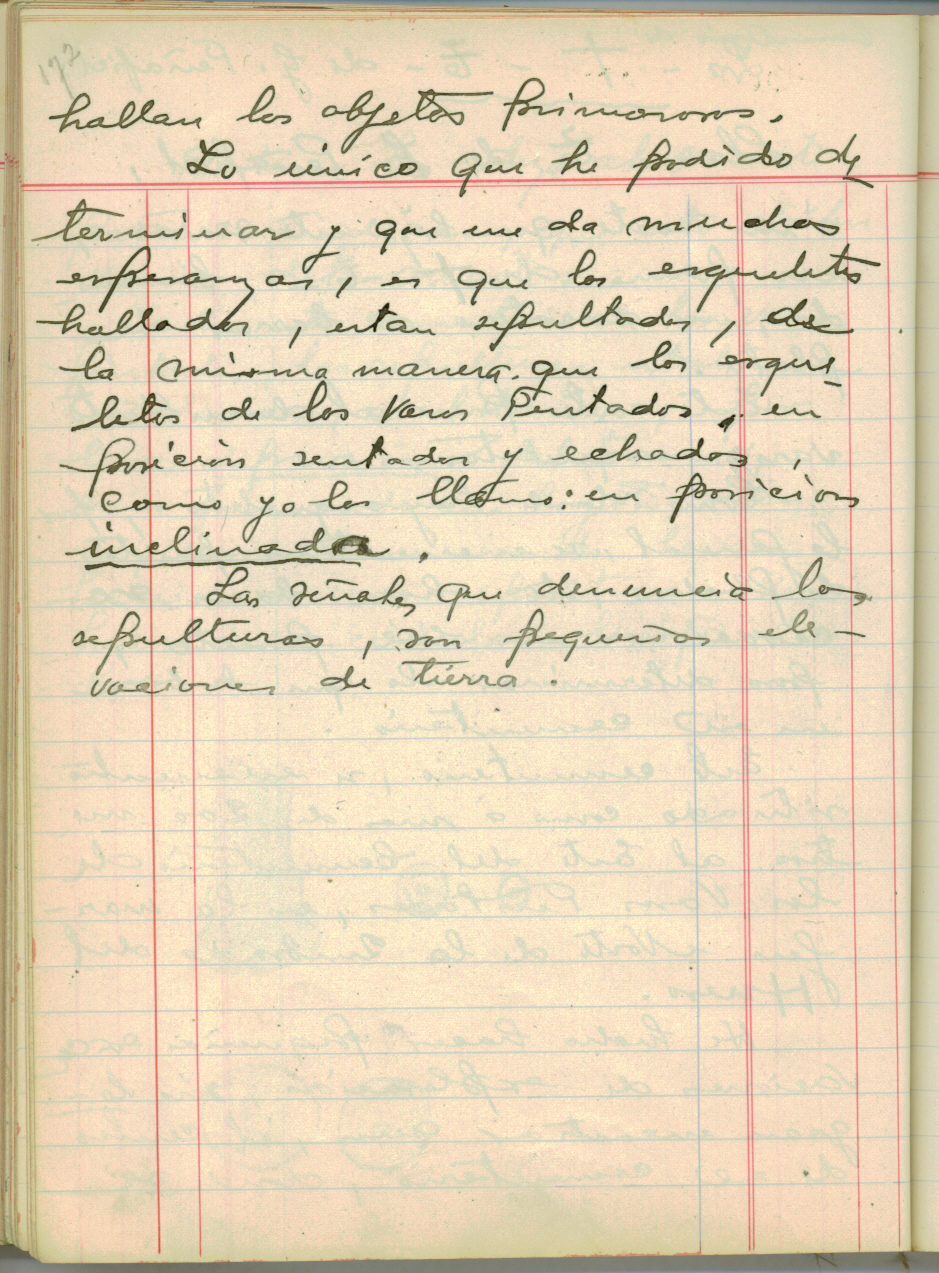 172
hallan los objetos primorosos.
Lo único que he podido de
terminar y que me da muchas
esperanzas, es que los esqueletos
hallados, estan sepultados, de
la misma manera que los esque-
letos de los Vasos Pintados, en
posición sentados y echados,
como yo los llamo: en posicion
inclinada.
Las señales que denuncia las
sepulturas, son pequeñas ele-
vaciones de tierra.